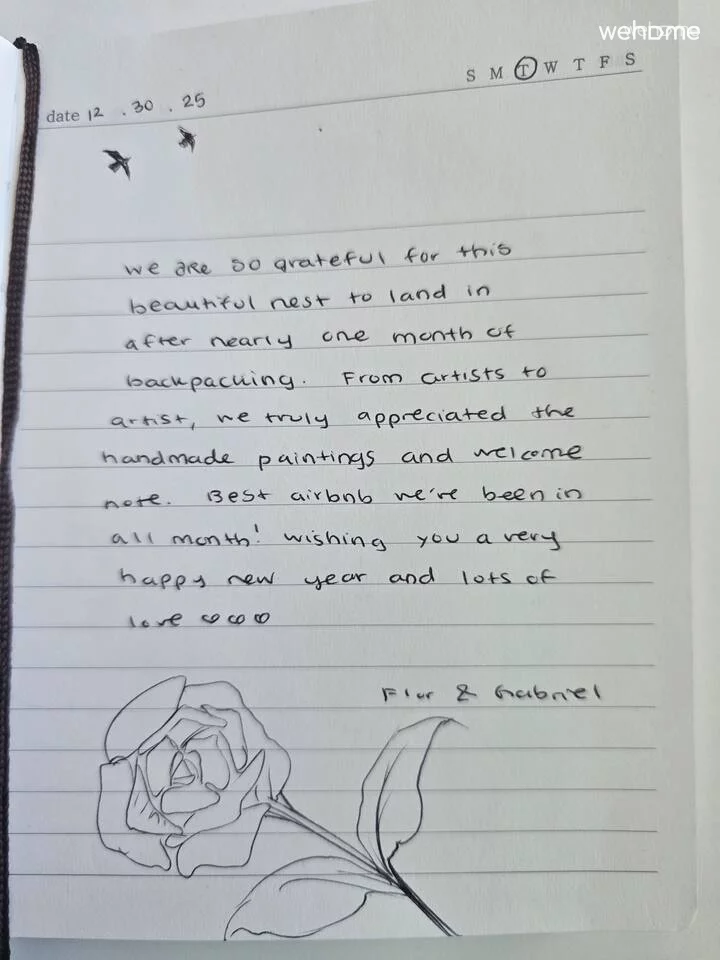 wehome
S M T W T F S
date 12 . 30 . 25
we are so grateful for this
beautiful nest to land in
after nearly one month of
backpacking. From artists to
artist, we truly appreciated the
handmade paintings and welcome
note. Best airbnb we've been in
all month! wishing you a very
happy new year and lots of
love
Flor & Gabriel